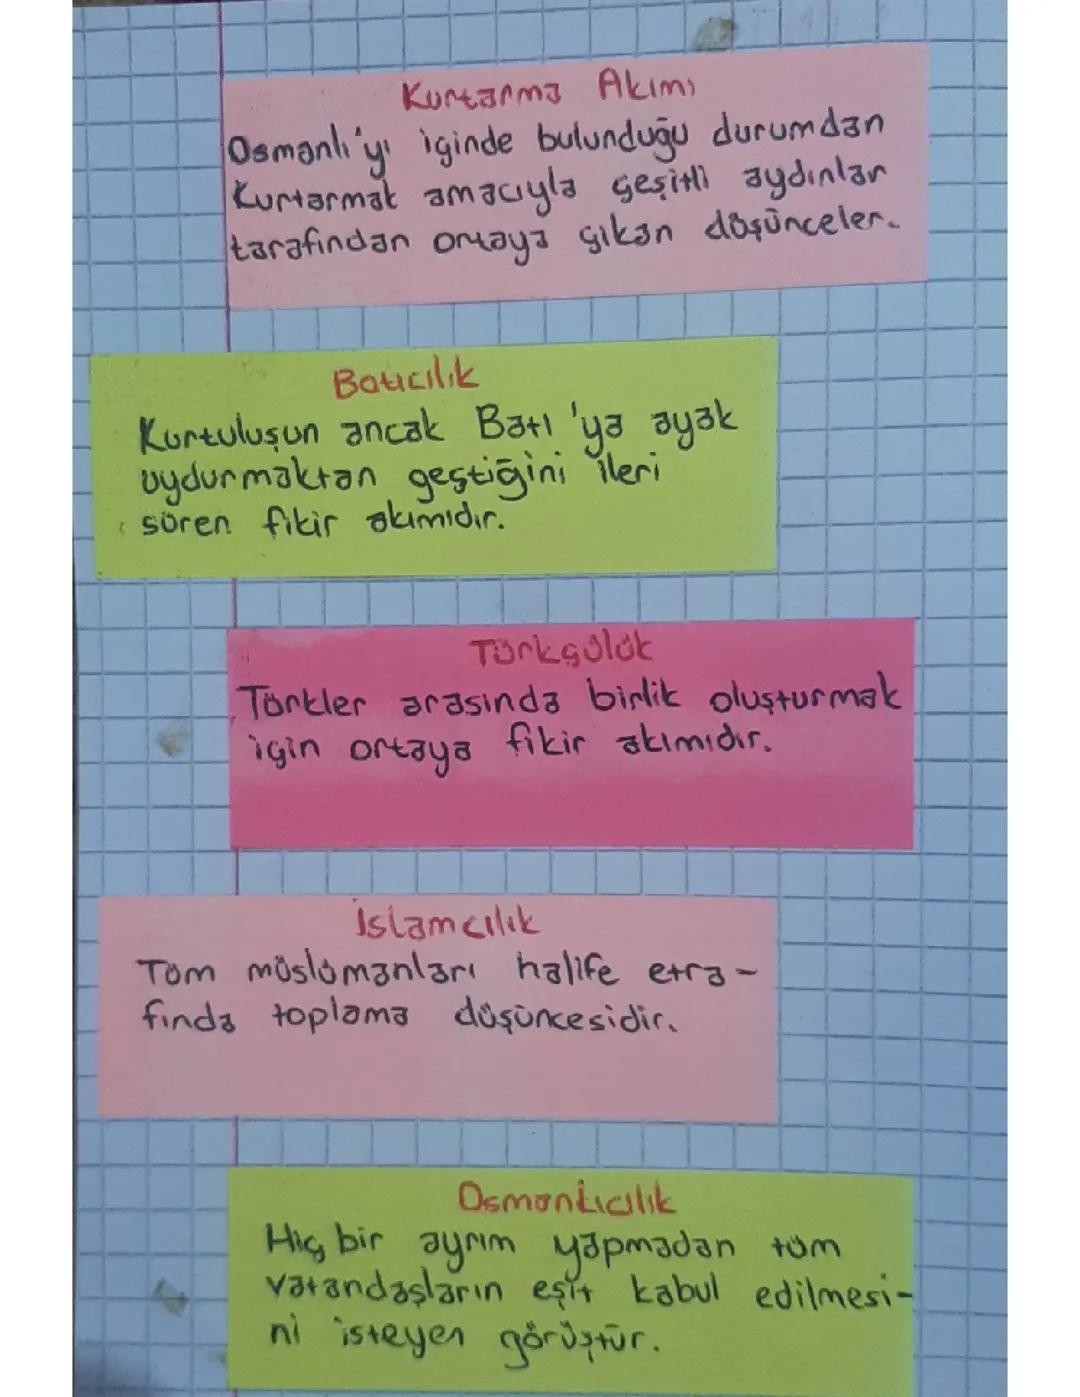 Kurtarma Akımı
Osmanlı'yı içinde bulunduğu durumdan
Kurtarmak amacıyla çeşitli aydınlar
tarafından ortaya çıkan düşünceler.
Batıcılık
Kurtuluşun ancak Batı'ya ayak
uydurmaktan geçtiğini ileri
süren fikir akımıdır.
Türkçülük
Türkler arasında birlik oluşturmak
için ortaya fikir akımıdır.
İslamcılık
Tüm müslümanları halife etra-
fında toplama düşüncesidir.
Osmanlıcılık
Hiç bir ayrım yapmadan tüm
vatandaşların eşit kabul edilmesi-
ni isteyen görüştür.